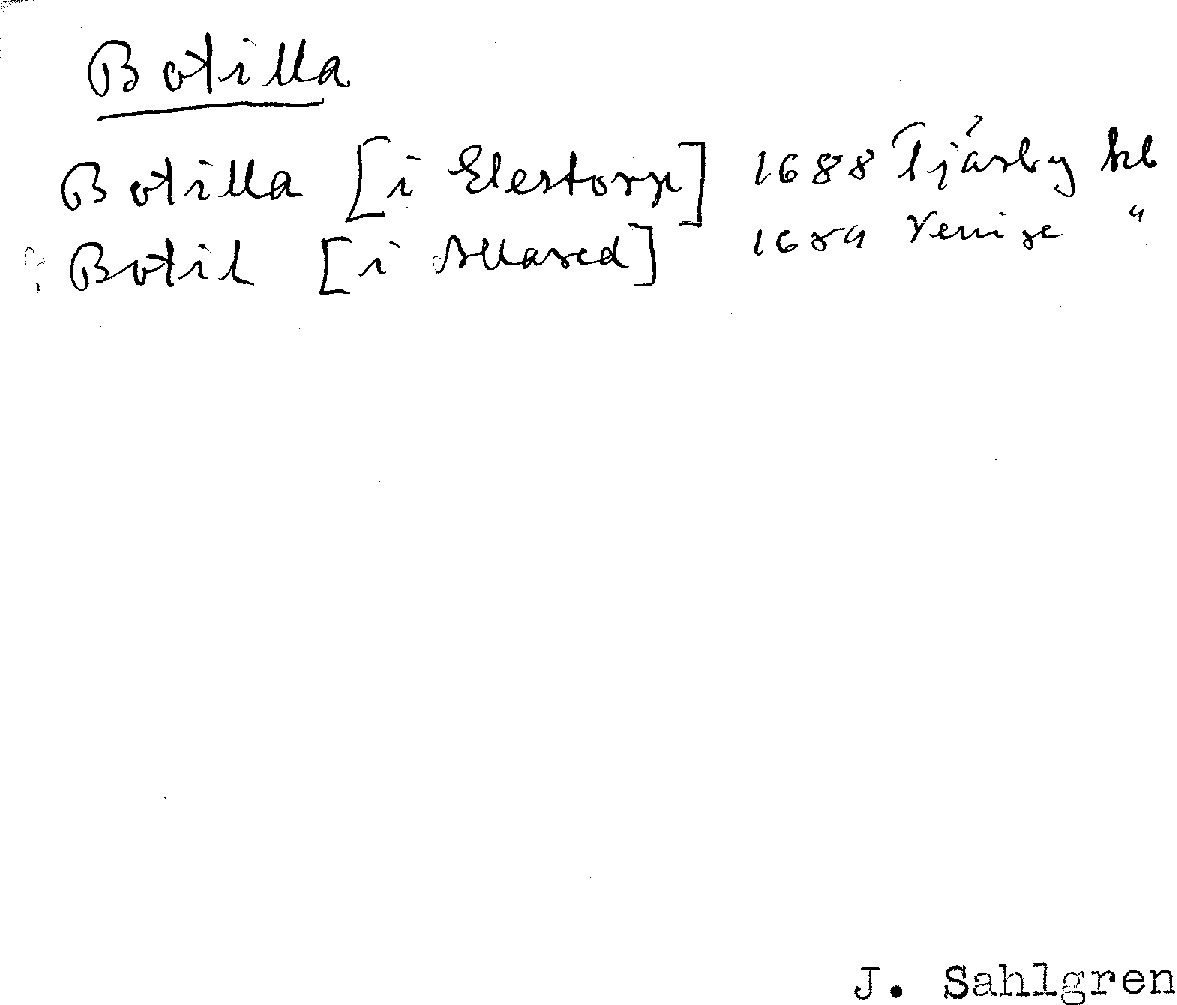 Botilla
Botilla [i Elestorp] 1688 Tjärby kb
Botil [i Allared] 1689 Veinge "
J. Sahlgren